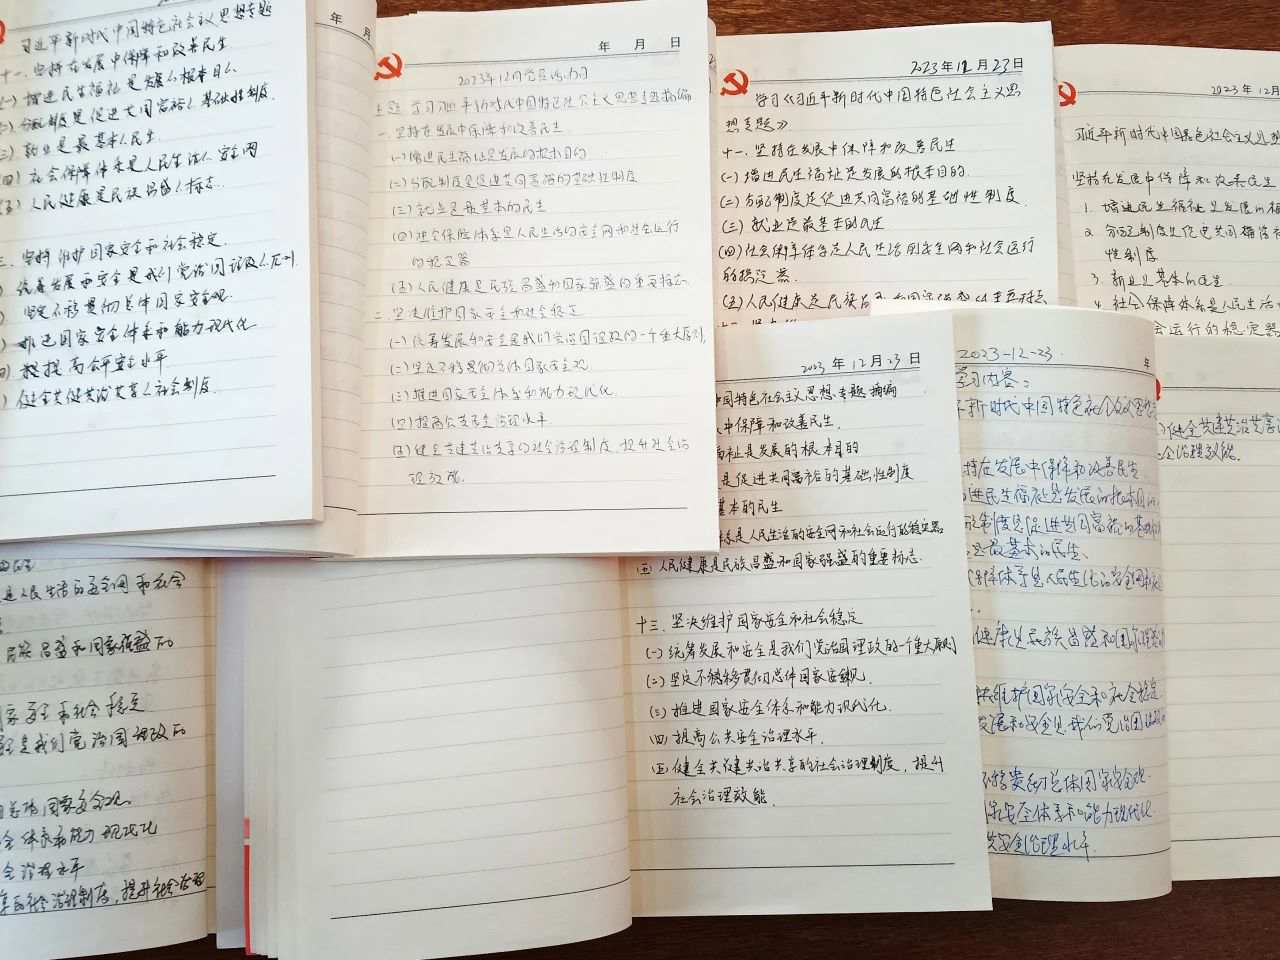 习近平新时代中国特色社会主义思想专题
十一、坚持在发展中保障和改善民生
(一)增进民生福祉是发展的根本目的
(二)分配制度是促进共同富裕的基础性制度
(三)就业是最基本的民生
(四)社会保障体系是人民生活的安全网
(五)人民健康是民族昌盛的标志
坚决维护国家安全和社会稳定
统筹发展和安全是我们党治国理政的
坚定不移贯彻总体国家安全观
推进国家安全体系和能力现代化
提高公共安全水平
健全共建共治共享的社会制度
年 月
年 月 日
2023年12月党员活动日
主题 学习习近平新时代中国特色社会主义思想专题摘编
一、坚持在发展中保障和改善民生
(一)增进民生福祉是发展的根本目的
(二)分配制度是促进共同富裕的基础性制度
(三)就业是最基本的民生
(四)社会保障体系是人民生活的安全网和社会运行
的稳定器
(五)人民健康是民族昌盛和国家强盛的重要标志
二、坚决维护国家安全和社会稳定
(一)统筹发展和安全是我们党治国理政的一个重大原则
(二)坚定不移贯彻总体国家安全观
(三)推进国家安全体系和能力现代化
(四)提高公共安全治理水平
(五)健全共建共治共享的社会治理制度,提升社会治
理效能
2023年12月23日
学习《习近平新时代中国特色社会主义思
想专题》
十一、坚持在发展中保障和改善民生
(一)增进民生福祉是发展的根本目的.
(二)分配制度是促进共同富裕的基础性制度.
(三)就业是最基本的民生
(四)社会保障体系是人民生活的安全网和社会运行
的稳定器.
(五)人民健康是民族昌盛和国家强盛的重要标志
2023年12月
习近平新时代中国特色社会主义思想
坚持在发展中保障和改善民生
1. 增进民生福祉是发展的根
2. 分配制度是促进共同富裕
性制度
3. 就业是基本的民生
4. 社会保障体系是人民生活
会运行的稳定器
2023年12月23日
中国特色社会主义思想专题摘编
中保障和改善民生.
福祉是发展的根本目的
是促进共同富裕的基础性制度
基本的民生
体系是人民生活的安全网和社会运行的稳定器
(五)人民健康是民族昌盛和国家强盛的重要标志.
十三、坚决维护国家安全和社会稳定
(一)统筹发展和安全是我们党治国理政的一个重大原则
(二)坚定不移贯彻总体国家安全观.
(三)推进国家安全体系和能力现代化.
(四)提高公共安全治理水平.
(五)健全共建共治共享的社会治理制度,提升
社会治理效能.
2023-12-23.
年
学习内容:
平新时代中国特色社会主义思想
持在发展中保障和改善民生
进民生福祉是发展的根本目的
配制度是促进共同富裕的基础
是最基本的民生、
保障体系是人民生活的安全网和
健康是民族昌盛和国家强盛
决维护国家安全和社会稳定
发展和安全是我们党治国理政
不移贯彻总体国家安全观.
国家安全体系和能力现代化
共安全治理水平.
健全共建共治共享
会治理效能.
是人民生活的安全网和社会
民族昌盛和国家强盛的
家安全和社会稳定
全是我们党治国理政的
总体国家安全观.
全体系和能力现代化
全治理水平
享的社会治理制度,提升社会治理